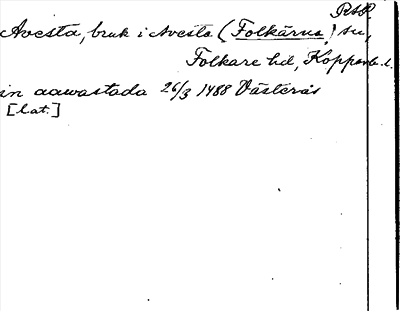 RAP.
Avesta, bruk i Avesta (Folkärna) sn,
Folkare hd, Kopparb. l.
in aawastada 26/3 1488 Västerås
[lat.]